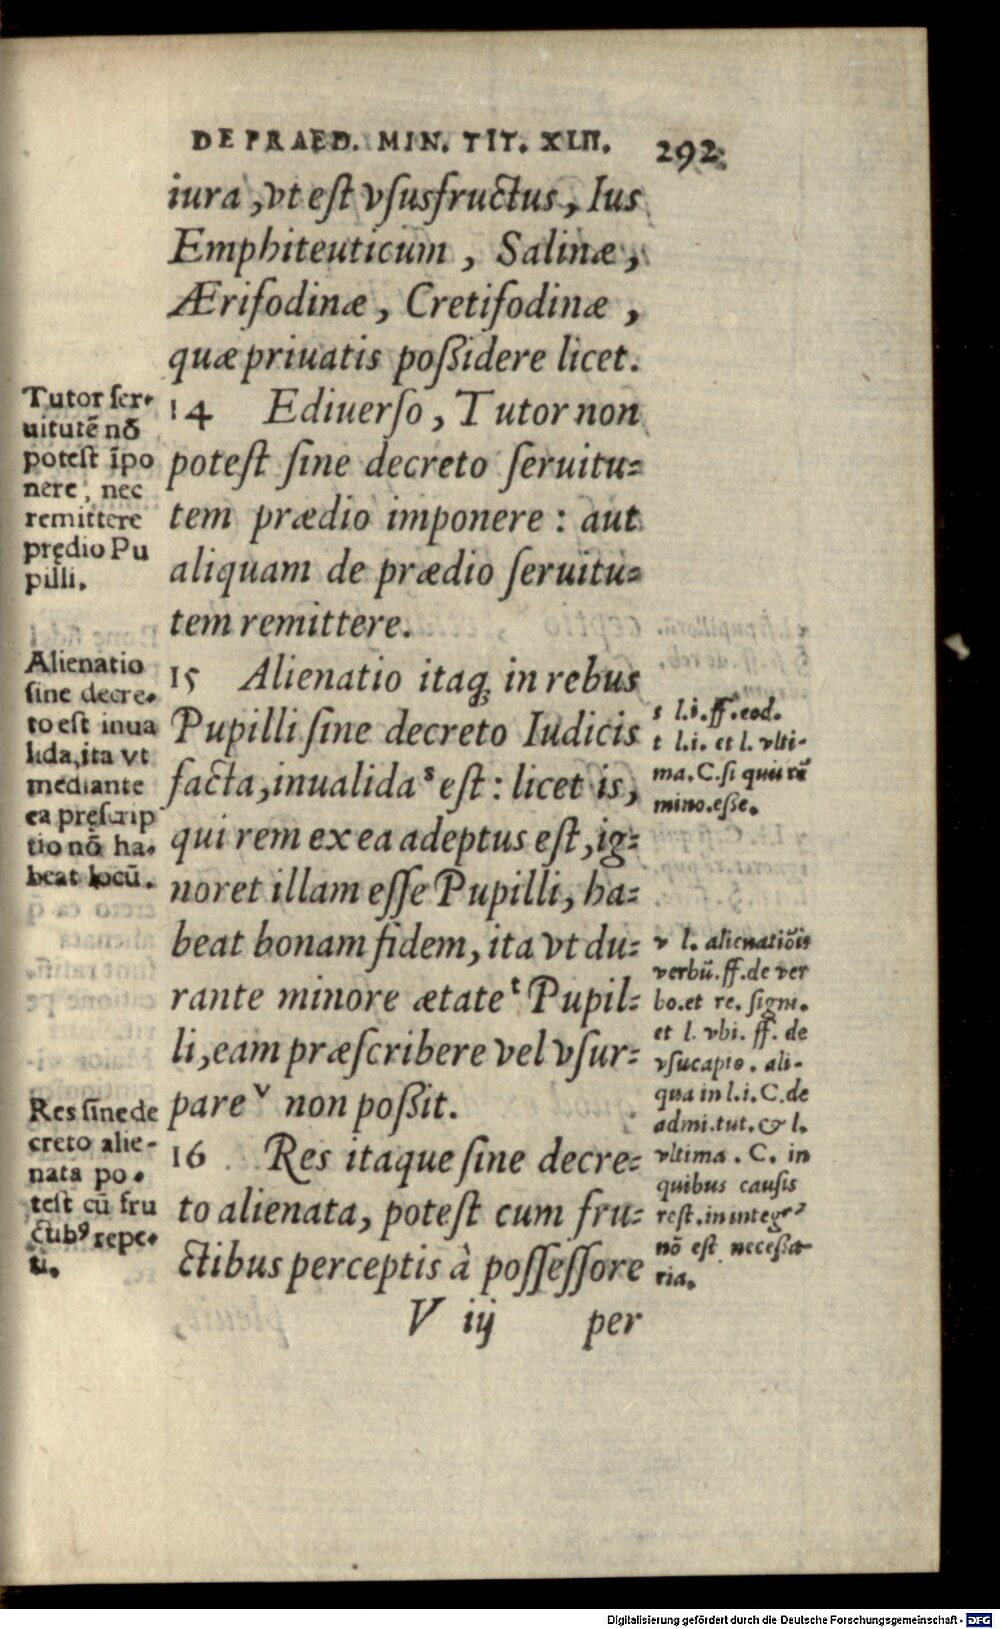 DE PRAED. MIN. TIT. XLII. 292
iura, vt est vsusfructus, Ius
Emphiteuticum, Salinæ,
Ærifodinæ, Cretifodinæ,
quæ priuatis poßidere licet.
Tutor ser-
uitutē nō
potest īpo
nere, nec
remittere
prędio Pu
pilli.
14 Ediuerso, Tutor non
potest sine decreto seruitu-
tem prædio imponere: aut
aliquam de prædio seruitu-
tem remittere.
Alienatio
sine decre-
to est inua
lida, ita vt
mediante
ea pręscrip
tio nō ha-
beat locū.
15 Alienatio itaq; in rebus
Pupilli sine decreto Iudicis
facta, inualida s est: licet is,
qui rem ex ea adeptus est, ig-
noret illam esse Pupilli, ha-
beat bonam fidem, ita vt du-
rante minore ætate t Pupil-
li, eam præscribere vel vsur-
pare v non poßit.
s l.i.ff.eod.
t l.i. et l. vlti-
ma. C. si quis rē
mino. esse.
v l. alienatiōis
verbū. ff. de ver
bo. et re. signi.
et l. vbi. ff. de
vsucapio. ali-
qua in l.i. C. de
admi. tut. & l.
vltima. C. in
quibus causis
rest. in integr
nō est necessa
ria.
Res sine de
creto alie-
nata po-
test cū fru
ctibꝰ repe-
ti.
16 Res itaque sine decre-
to alienata, potest cum fru-
ctibus perceptis à possessore
V iij per
Digitalisierung gefördert durch die Deutsche Forschungsgemeinschaft - DFG